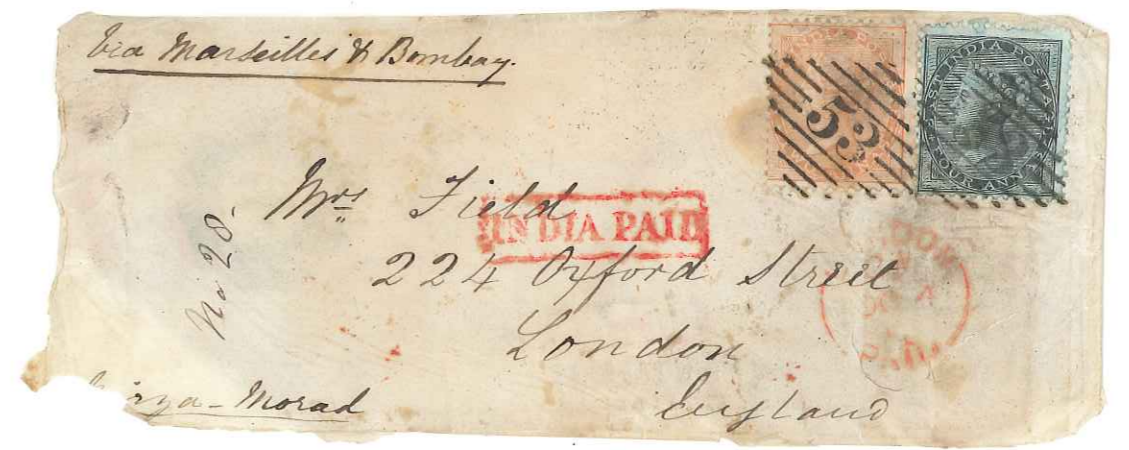 Via Marseilles & Bombay.
EAST INDIA POSTAGE
FOUR ANNAS
53
Mrs Field
INDIA PAID
224 Oxford Street
London
England
No 20
Morad